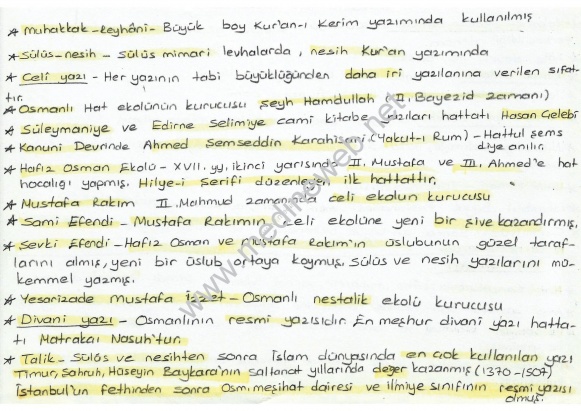 * Muhakkak-Reyhâni- Büyük boy Kur'an-ı Kerim yazımında kullanılmış
* Sülüs-nesih- Sülüs mimari levhalarda, nesih Kur'an yazımında
* Celi yazı - Her yazının tabi büyüklüğünden daha iri yazılanına verilen sıfat-
tır.
* Osmanlı Hat ekolünün kurucusu Şeyh Hamdullah (II. Bayezid zamanı)
* Süleymaniye ve Edirne Selimiye cami kitabe yazıları hattatı Hasan Çelebi
* Kanuni Devrinde Ahmed Şemseddin Karahisari (Yakut-ı Rum) - Hattul şems
diye anılır.
* Hafız Osman Ekolü - XVII. yy. ikinci yarısında II. Mustafa ve III. Ahmed'e hat
hocalığı yapmış. Hilye-i Şerifi düzenleyen ilk hattattır.
* Mustafa Rakım II. Mahmud zamanında celi ekolun kurucusu
* Sami Efendi - Mustafa Rakımın celi ekolüne yeni bir şive kazandırmış.
* Şevki Efendi - Hafız Osman ve Mustafa Rakım'ın üslubunun güzel taraf-
larını almış, yeni bir üslub ortaya koymuş. Sülüs ve nesih yazılarını mü-
kemmel yazmış.
* Yesarizade Mustafa İzzet - Osmanlı nestalik ekolü kurucusu
* Divani yazı - Osmanlının resmi yazısıdır. En meşhur divani yazı hatta-
tı Matrakçı Nasuh'tur.
* Talik - Sülüs ve nesihten sonra İslam dünyasında en çok kullanılan yazı
Timur, Şahruh, Hüseyin Baykara'nın saltanat yıllarında değer kazanmış (1370-1507)
İstanbul'un fethinden sonra Osm. meşihat dairesi ve ilmiye sınıfının resmi yazısı
olmuş.
www.medineweb.net